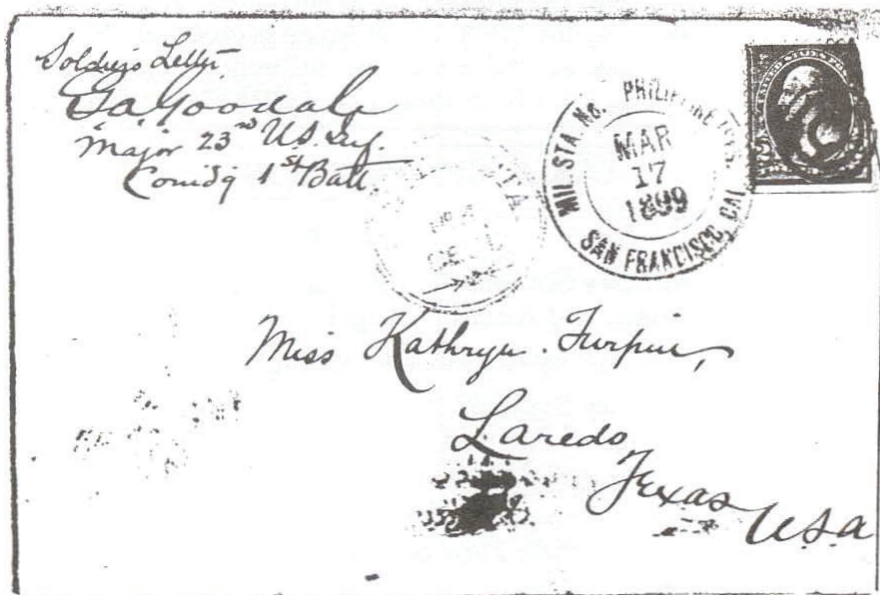 Soldiers Letter
GaGoodale
Major 23rd US. Inf.
Comdg 1st Batt.
MIL. STA. No. PHILIPPINE
MAR
17
1899
SAN FRANCISCO, CAL.
UNITED STATES
STA
Miss Kathryn Turpin,
Laredo,
Texas
USA